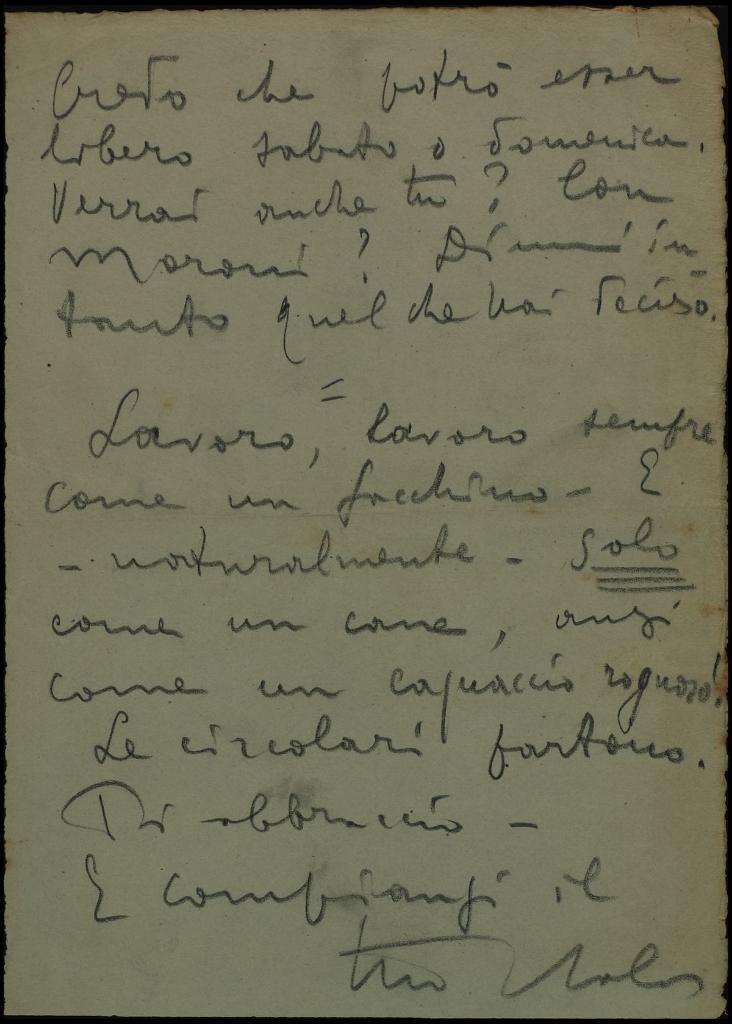 Credo che potrò esser
libero sabato o domenica.
Verrai anche tu? Con
Maroni? Dimmi in
tanto quel che hai deciso.
=
Lavoro, lavoro sempre
come un facchino - E
- naturalmente - solo
come un cane, anzi
come un cagnaccio rognoso!
Le circolari partono.
Ti abbraccio -
E compiangi il
tuo Italo